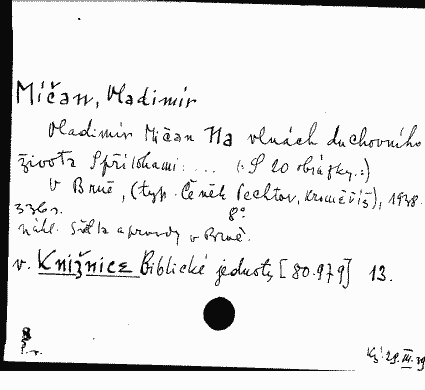 Míčan, Vladimír
Vladimír Míčan Na vlnách duchovního
života S přílohami: ... (: S 20 obrázky. :)
V Brně, (typ. Čeněk Pechtor, Kroměříž), 1938.
336 s. 8°
nákl. Světla a pravdy v Brně.
v. Knižnice Biblické jednoty [80.979] 13.
Kř. 29. III. 39